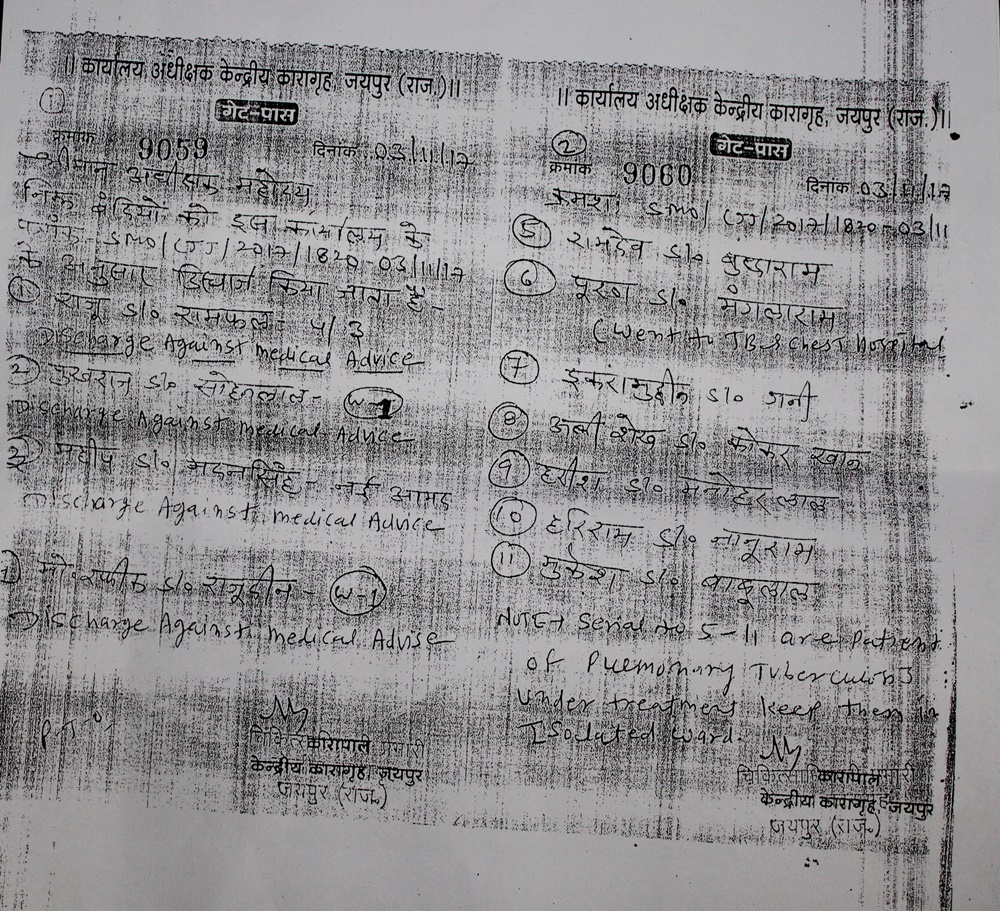 ।। कार्यालय अधीक्षक केन्द्रीय कारागृह, जयपुर (राज.)।।
①
गेट-पास
क्रमांक 9059 दिनांक 03/11/17
श्रीमान अधीक्षक महोदय,
निम्न बंदियों को इस कार्यालय के
SMO/CJJ/2017/1820-03/11/17
के अनुसार डिस्चार्ज किया जाता है-
① राजू S/o रामफल- 4/3
Discharge Against medical Advice
② पुखराज S/o सोहनलाल- W-1
Discharge Against medical Advice
S/o मदनसिंह- नई आमद
Discharge Against medical Advice
मो. रफीक S/o - W-1
Discharge Against medical Advise
P.T.O
चिकित्सा कारापाल प्रभारी
केन्द्रीय कारागृह, जयपुर
जयपुर (राज.)
।। कार्यालय अधीक्षक केन्द्रीय कारागृह, जयपुर (राज.)।।
②
गेट-पास
क्रमांक 9060 दिनांक 03/11/17
क्रमश: SMO/CJJ/2017/1820-03/11
⑤ रामदेव S/o बुद्धाराम
⑥ पूरण S/o मंगलाराम
(Went to TB & Chest Hospital
⑦ इकरामुद्दीन S/o गनी
⑧ अली शेख S/o खान
⑨ हरीश S/o मनोहर लाल
⑩ हरिराम S/o नानूराम
⑪ मुकेश S/o बाबूलाल
NOTE→ Serial no 5-11 are Patient
of Pulmonary Tuberculosis
under treatment keep them in
ISolated ward.
कारापाल
केन्द्रीय कारागृह जयपुर
जयपुर (राज.)